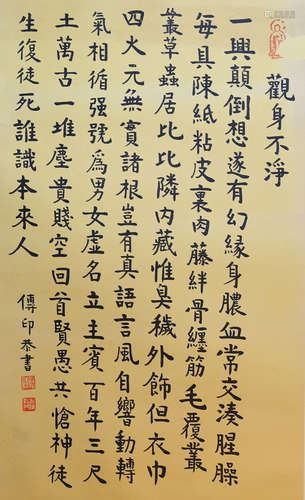 觀身不淨
一興顛倒想遂有幻緣身膿血常交湊腥臊
每具陳紙粘皮裹肉藤絆骨纏筋毛覆叢
叢草蟲居比比隣內藏惟臭穢外飾但衣巾
四大元無實諸根豈有真語言風自響動轉
氣相循强號爲男女虛名立主賓百年三尺
土萬古一堆塵貴賤空回首賢愚共愴神徒
生復徒死誰識本來人
傳印恭書